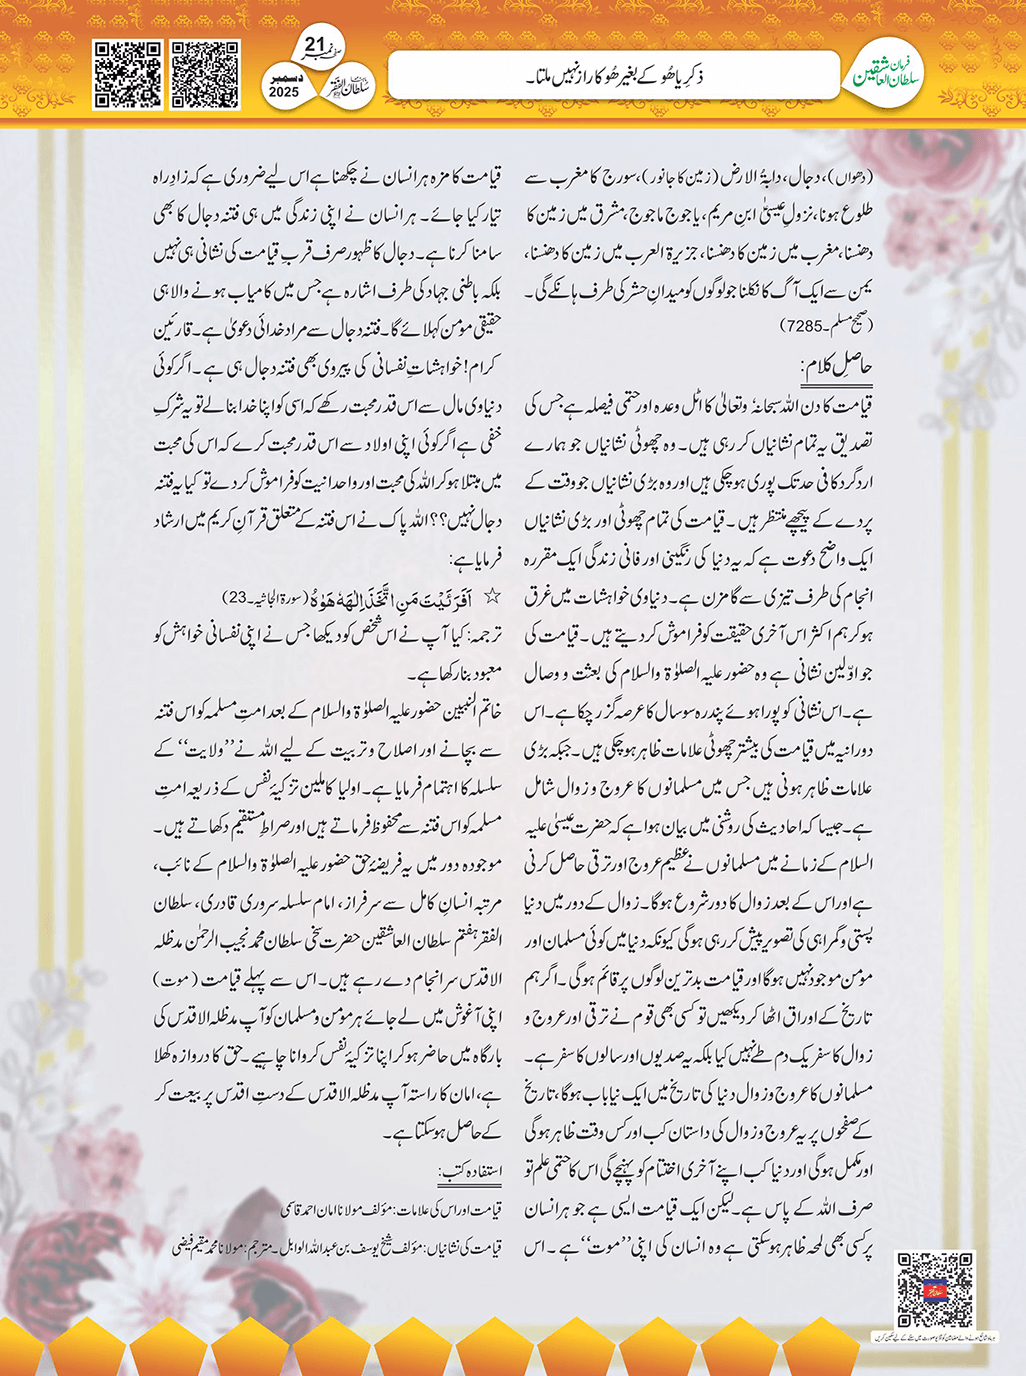 صفحہ نمبر 21
دسمبر 2025
ماہنامہ سلطان الفقر
ذکرِ یاھُو کے بغیر ھُو کا راز نہیں ملتا۔
فرمان سلطان العاشقین
(دھواں)، دجال، دابۃ الارض (زمین کا جانور)، سورج کا مغرب سے
طلوع ہونا، نزولِ عیسیٰؑ ابنِ مریم، یاجوج ماجوج، مشرق میں زمین کا
دھنسنا، مغرب میں زمین کا دھنسنا، جزیرۃ العرب میں زمین کا دھنسنا،
یمن سے ایک آگ کا نکلنا جو لوگوں کو میدانِ حشر کی طرف ہانکے گی۔
(صحیح مسلم۔7285)
حاصلِ کلام:
قیامت کا دن اللہ سبحانہٗ وتعالیٰ کا اٹل وعدہ اور حتمی فیصلہ ہے جس کی
تصدیق یہ تمام نشانیاں کر رہی ہیں۔ وہ چھوٹی نشانیاں جو ہمارے
اردگرد کافی حد تک پوری ہو چکی ہیں اور وہ بڑی نشانیاں جو وقت کے
پردے کے پیچھے منتظر ہیں۔ قیامت کی تمام چھوٹی اور بڑی نشانیاں
ایک واضح دعوت ہے کہ یہ دنیا کی رنگینی اور فانی زندگی ایک مقررہ
انجام کی طرف تیزی سے گامزن ہے۔ دنیاوی خواہشات میں غرق
ہو کر ہم اکثر اس آخری حقیقت کو فراموش کر دیتے ہیں۔ قیامت کی
جو اوّلین نشانی ہے وہ حضور علیہ الصلوٰۃ والسلام کی بعثت و وصال
ہے۔ اس نشانی کو پورا ہوئے پندرہ سو سال کا عرصہ گزر چکا ہے۔ اس
دورانیہ میں قیامت کی بیشتر چھوٹی علامات ظاہر ہو چکی ہیں۔ جبکہ بڑی
علامات ظاہر ہونی ہیں جس میں مسلمانوں کا عروج و زوال شامل
ہے۔ جیسا کہ احادیث کی روشنی میں بیان ہوا ہے کہ حضرت عیسیٰ علیہ
السلام کے زمانے میں مسلمانوں نے عظیم عروج اور ترقی حاصل کرنی
ہے اور اس کے بعد زوال کا دور شروع ہوگا۔ زوال کے دور میں دنیا
پستی و گمراہی کی تصویر پیش کر رہی ہوگی کیونکہ دنیا میں کوئی مسلمان اور
مومن موجود نہیں ہوگا اور قیامت بدترین لوگوں پر قائم ہوگی۔ اگر ہم
تاریخ کے اوراق اٹھا کر دیکھیں تو کسی بھی قوم نے ترقی اور عروج و
زوال کا سفر یک دم طے نہیں کیا بلکہ یہ صدیوں اور سالوں کا سفر ہے۔
مسلمانوں کا عروج و زوال دنیا کی تاریخ میں ایک نیا باب ہوگا، تاریخ
کے صفحوں پر یہ عروج و زوال کی داستان کب اور کس وقت ظاہر ہوگی
اور مکمل ہوگی اور دنیا کب اپنے آخری اختتام کو پہنچے گی اس کا حتمی علم تو
صرف اللہ کے پاس ہے۔ لیکن ایک قیامت ایسی ہے جو ہر انسان
پر کسی بھی لمحہ ظاہر ہو سکتی ہے وہ انسان کی اپنی ’’موت‘‘ ہے۔ اس
قیامت کا مزہ ہر انسان نے چکھنا ہے اس لیے ضروری ہے کہ زادِ راہ
تیار کیا جائے۔ ہر انسان نے اپنی زندگی میں ہی فتنہ دجال کا بھی
سامنا کرنا ہے۔ دجال کا ظہور صرف قربِ قیامت کی نشانی ہی نہیں
بلکہ باطنی جہاد کی طرف اشارہ ہے جس میں کامیاب ہونے والا ہی
حقیقی مومن کہلائے گا۔ فتنہ دجال سے مراد خدائی دعویٰ ہے۔ قارئین
کرام! خواہشاتِ نفسانی کی پیروی بھی فتنہ دجال ہی ہے۔ اگر کوئی
دنیاوی مال سے اس قدر محبت رکھے کہ اسی کو اپنا خدا بنالے تو یہ شرکِ
خفی ہے اگر کوئی اپنی اولاد سے اس قدر محبت کرے کہ اس کی محبت
میں مبتلا ہو کر اللہ کی محبت اور واحدانیت کو فراموش کر دے تو کیا یہ فتنہ
دجال نہیں؟؟ اللہ پاک نے اس فتنہ کے متعلق قرآنِ کریم میں ارشاد
فرمایا ہے:
☆ اَفَرَئَیْتَ مَنِ اتَّخَذَ اِلٰھَہٗ ھَوٰہُ (سورۃ الجاثیہ۔23)
ترجمہ: کیا آپ نے اس شخص کو دیکھا جس نے اپنی نفسانی خواہش کو
معبود بنا رکھا ہے۔
خاتم النبیین حضور علیہ الصلوٰۃ والسلام کے بعد امتِ مسلمہ کو اس فتنہ
سے بچانے اور اصلاح و تربیت کے لیے اللہ نے ’’ولایت‘‘ کے
سلسلہ کا اہتمام فرمایا ہے۔ اولیا کاملین تزکیۂ نفس کے ذریعہ امتِ
مسلمہ کو اس فتنہ سے محفوظ فرماتے ہیں اور صراطِ مستقیم دکھاتے ہیں۔
موجودہ دور میں یہ فریضۂ حق حضور علیہ الصلوٰۃ والسلام کے نائب،
مرتبہ انسانِ کامل سے سرفراز، امام سلسلہ سروری قادری، سلطان
الفقر ہفتم سلطان العاشقین حضرت سخی سلطان محمد نجیب الرحمٰن مدظلہ
الاقدس سرانجام دے رہے ہیں۔ اس سے پہلے قیامت (موت)
اپنی آغوش میں لے جائے ہر مومن و مسلمان کو آپ مدظلہ الاقدس کی
بارگاہ میں حاضر ہو کر اپنا تزکیۂ نفس کروانا چاہیے۔ حق کا دروازہ کھلا
ہے، امان کا راستہ آپ مدظلہ الاقدس کے دستِ اقدس پر بیعت کر
کے حاصل ہو سکتا ہے۔
استفادہ کتب:
قیامت اور اس کی علامات: مؤلف مولانا امان احمد قاسمی
قیامت کی نشانیاں: مؤلف شیخ یوسف بن عبداللہ الوابل۔ مترجم: مولانا محمد مقیم فیضی